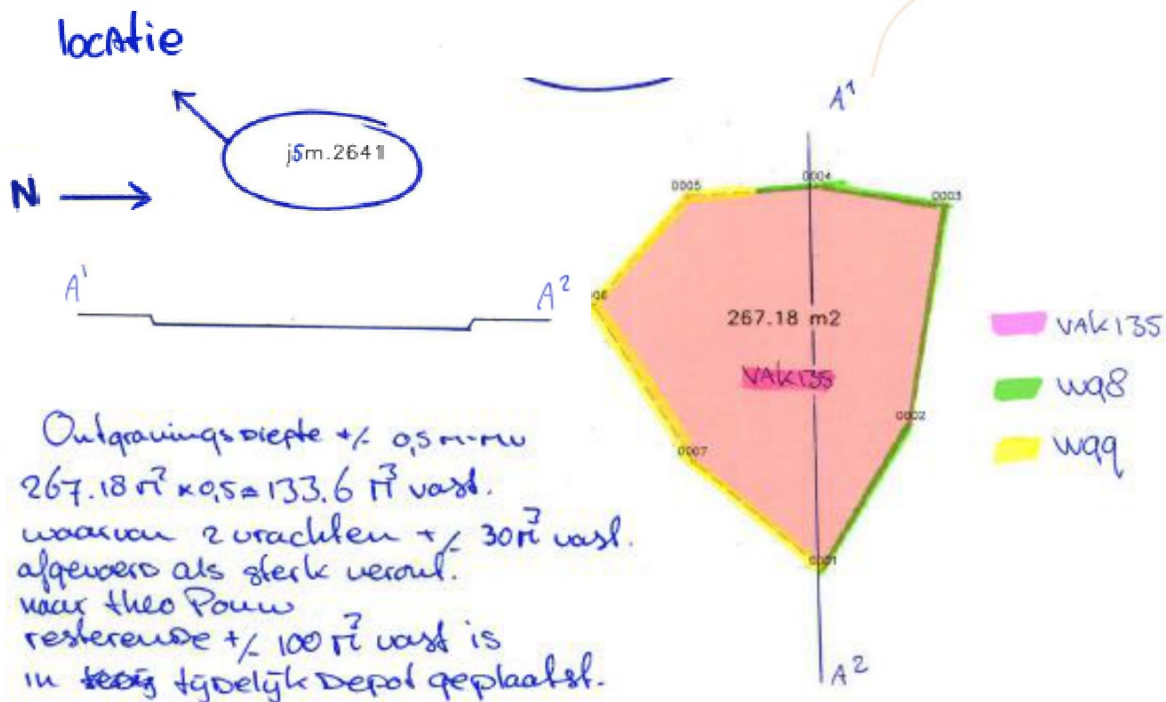 locatie
j5m.2641
N
A1
A2
Ontgravingsdiepte +/- 0,5 m-mv
267.18 m² x 0,5 = 133.6 m³ vast.
waarvan 2 vrachten +/- 30 m³ vast.
afgevoerd als sterk veront.
naar theo Pouw
resterende +/- 100 m³ vast is
in tijdelijk Depot geplaatst.
A1
0004
0005
0003
06
267.18 m2
VAK135
0002
0007
0001
A2
VAK135
wq8
wqq